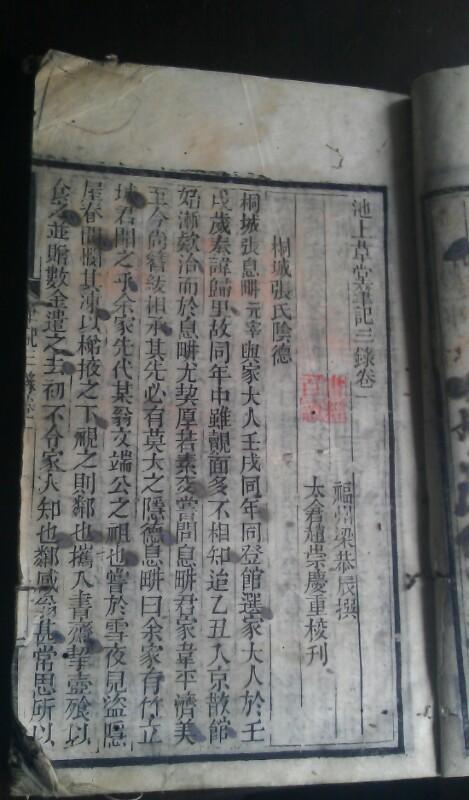 池上草堂筆記三錄卷一
福州梁恭辰撰
太倉趙崇慶重校刊
桐城張氏陰德
桐城張息畊元宰與家大人壬戌同年同登館選家大人於壬
戌歲奉諱歸里故同年中雖覿面多不相知迨乙丑入京散館
始漸欵洽而於息畊尤契厚若素交嘗問息畊君家韋平濟美
至今尚簪紱相承其先必有莫大之隱德息畊曰余家有竹立
城君聞之乎余家先代某翁文端公之祖也嘗於雪夜見盜隱
屋春間憫其凍以梯掖之下視之則鄰也攜入書齋挈壺飱以
食之並贈數金遣之去初不令家人知也鄰感翁甚常思所以
筆記三錄卷一